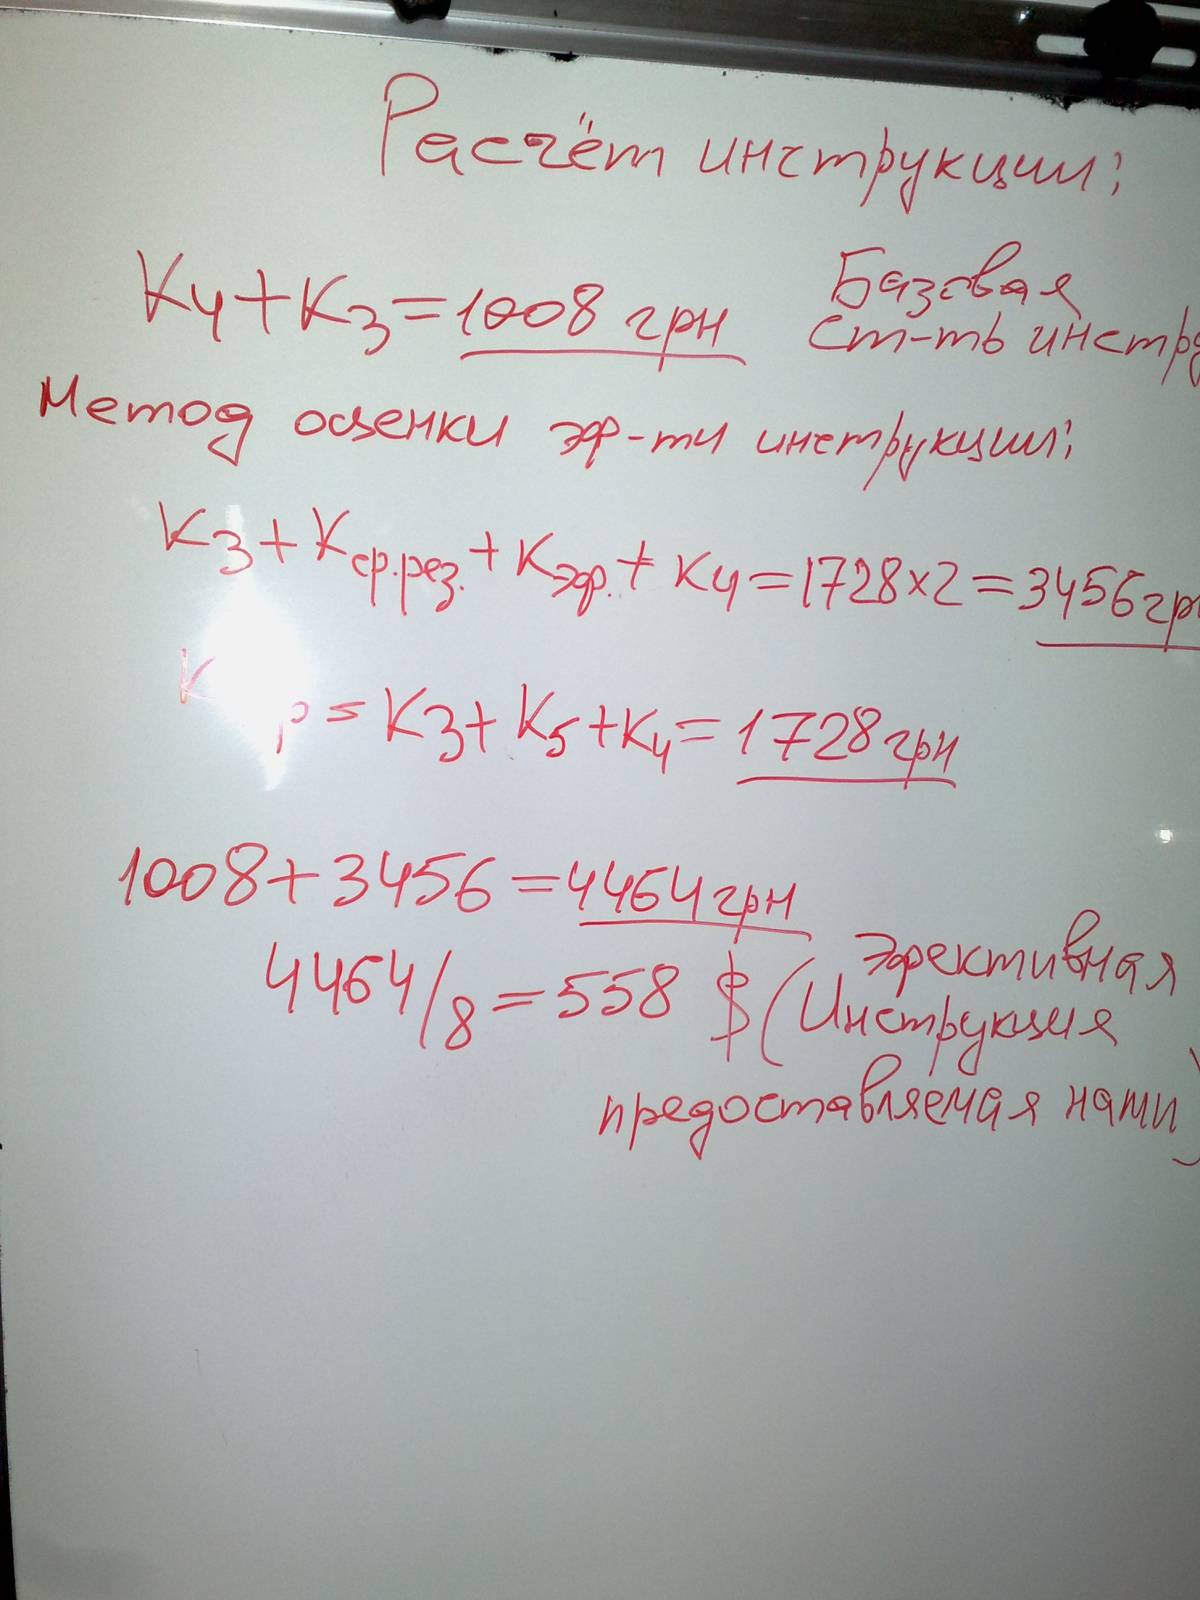 Расчёт инструкции:
К4+К3=1008 грн Базовая
ст-ть инстру
Метод оценки эф-ти инструкции:
К3+Кср.рез.+Кэф.+К4=1728×2=3456грн
К р=К3+К5+К4=1728грн
1008+3456=4464грн
4464/8=558 $ (Эфективная
Инструкция
предоставляемая нами)